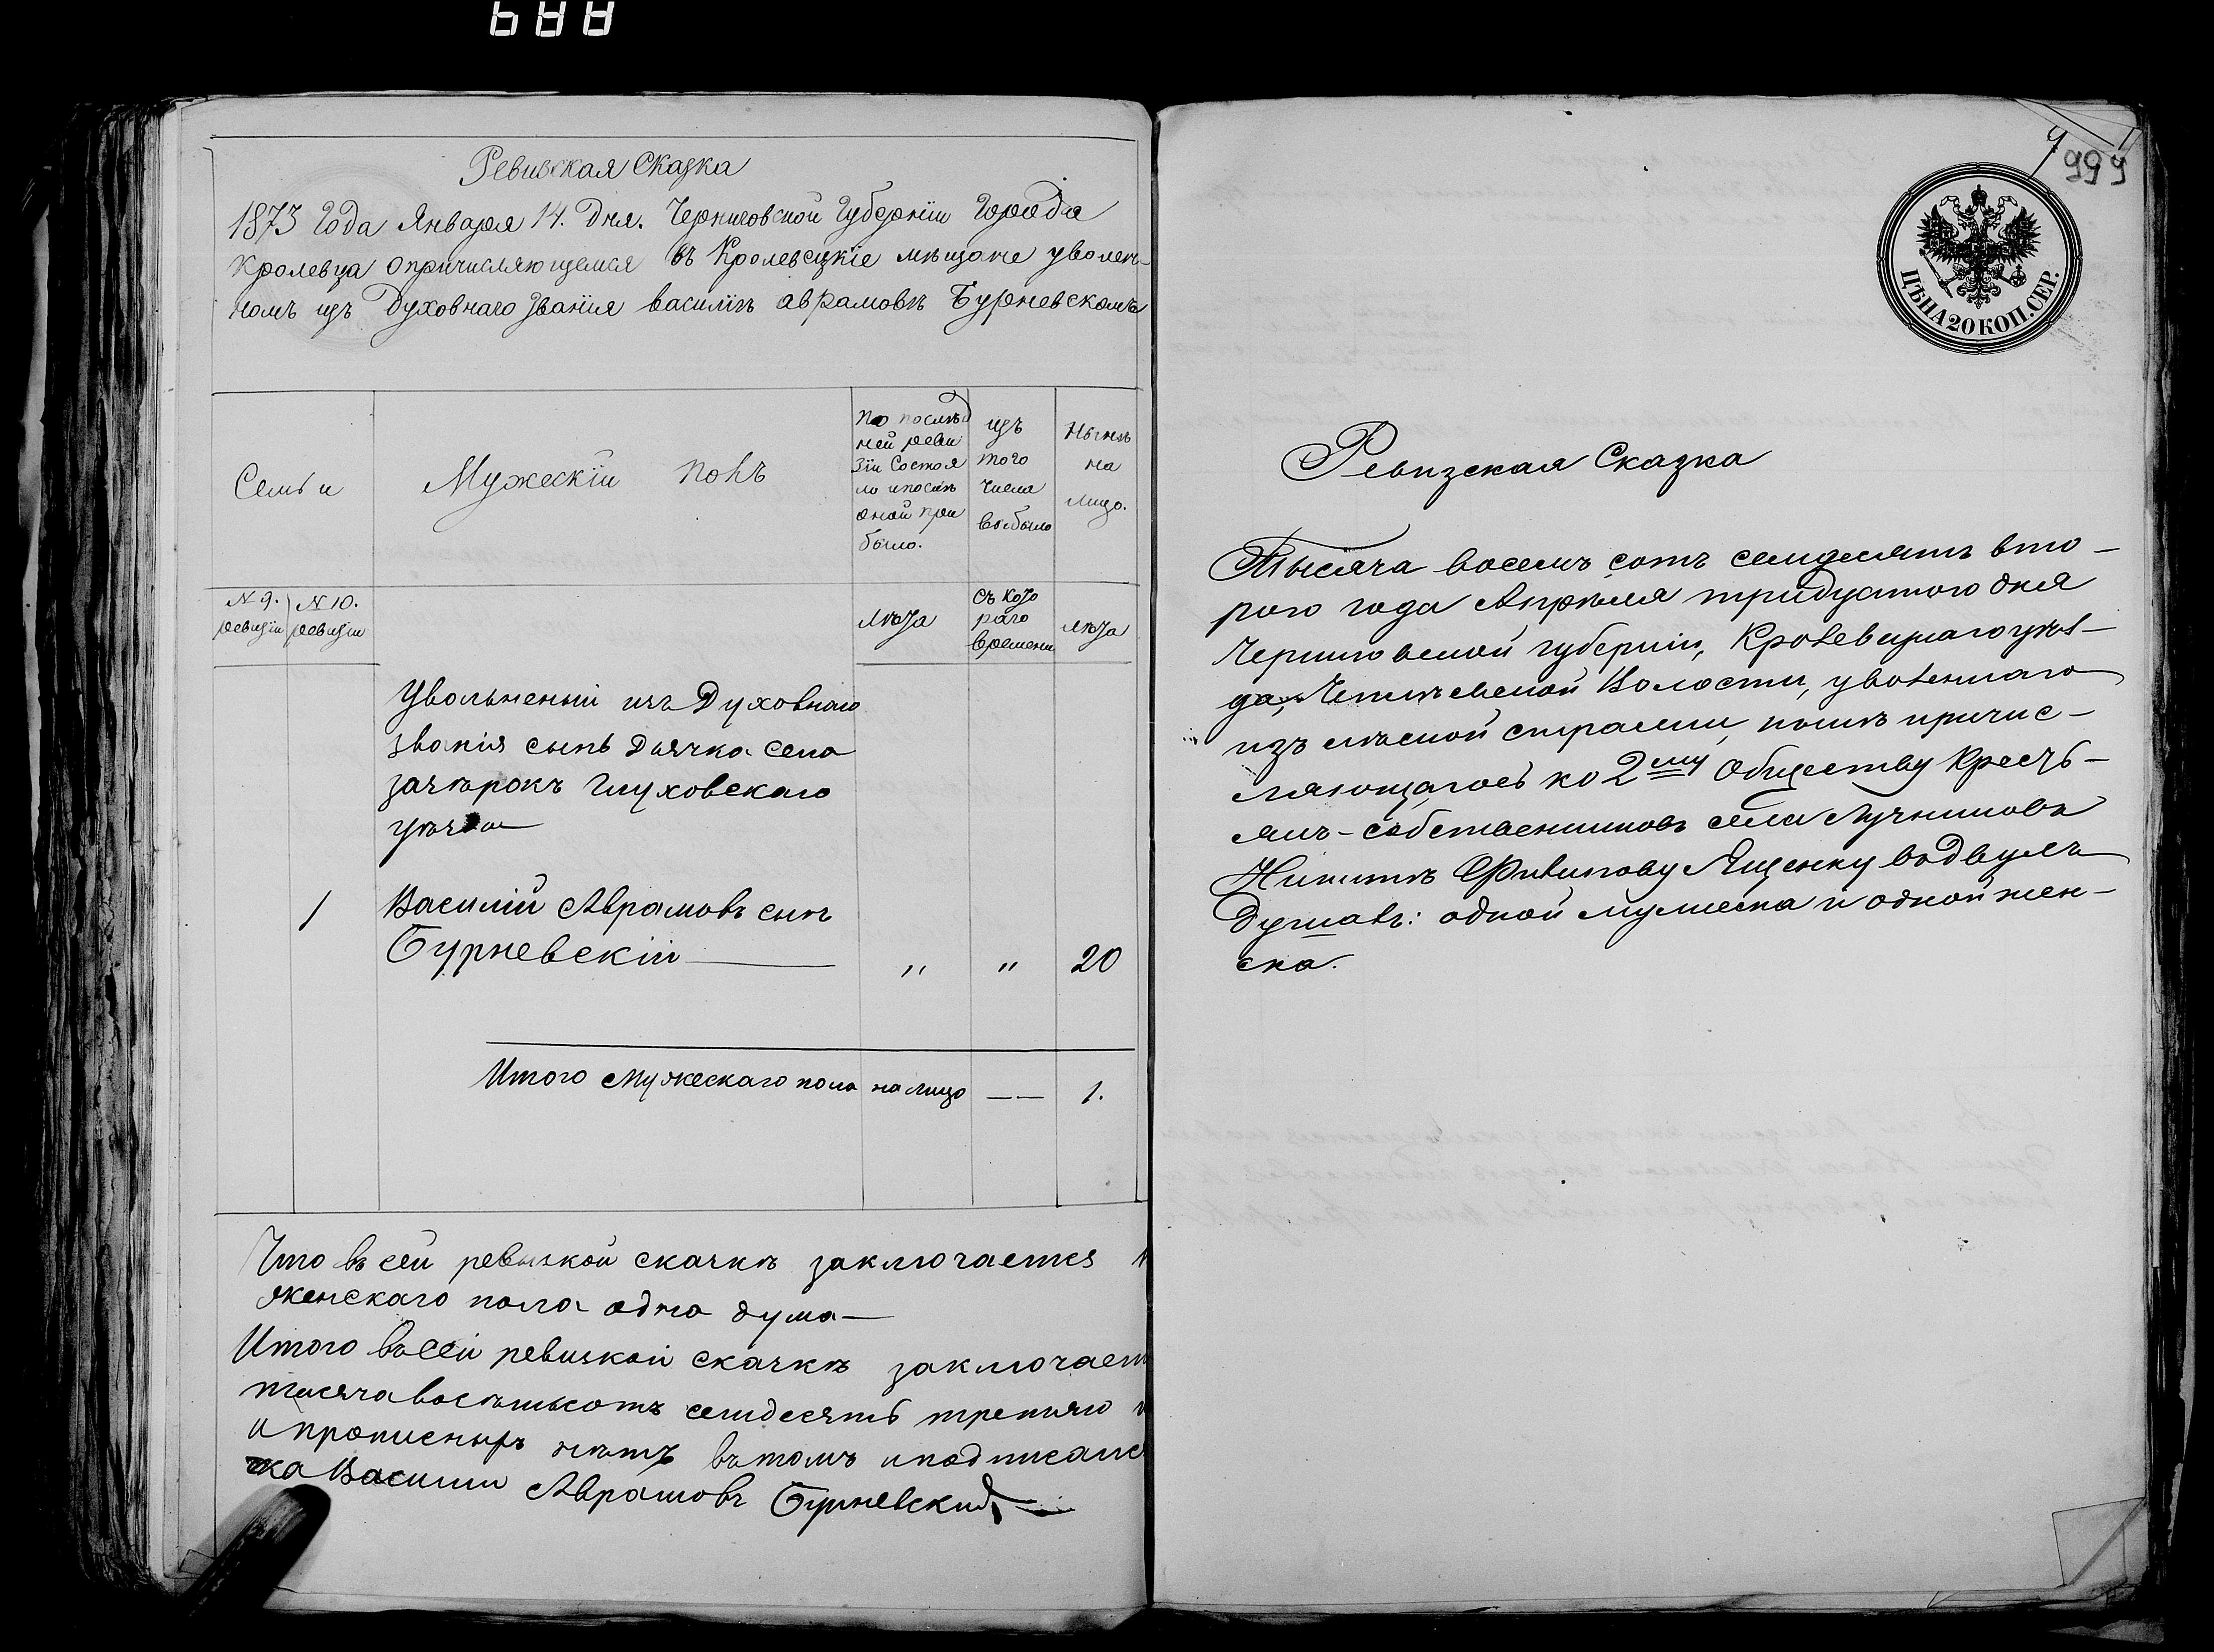 Ревизская Сказка
1873 года Января 14. Дня. Черниговской Губерніи Города
Кролевца о причисляющемся въ Кролевецкіе мѣщане уволен-
номъ изъ Духовнаго званія василіѣ аврамовѣ Бурневскомъ
Семьи
Мужескій полъ
По послѣд
ней реви
зіи Состоя
ло и послѣ
оной при
было.
изъ
того
числа
выбыло
Нынѣ
на
лицо.
N 9. N 10.
ревизіи ревизіи
Лѣта
съ кото
раго
времени
лѣта
Увольненый изъ Духовнаго
званія сынъ Дьячка села
зазѣрокъ Глуховскаго
уѣзда
1 Василій Аврамовъ сынъ
Бурневскій — „ „ 20
Итого Мужескаго пола на лицо — — 1.
Что въ сей ревизкой сказкѣ заключается
женскаго пола одна душа —
Итого въ сей ревизкой сказкѣ заключает
тысяча восѣмьсотъ семдесятъ третяго
и прописныхъ нѣтъ въ томъ и подписалс
Василии Аврамовъ Бурневский
999
ЦѢНА 20 КОП. СЕР.
Ревизская Сказка
Тысяча восемъ сотъ семдесятъ вто-
рого года Апрѣля тридцатого дня
Черниговской губерніи, Кролевецкаго уѣз-
да, Волости, уволеннаго
изъ лѣсной стражи, нынѣ причис-
ляющагось ко 2му Обществу Кресть-
янъ-собственниковъ села Лучниковъ
Никитѣ Филипову Ященку въ двухъ
Душахъ: одной мужеска и одной жен-
ска.